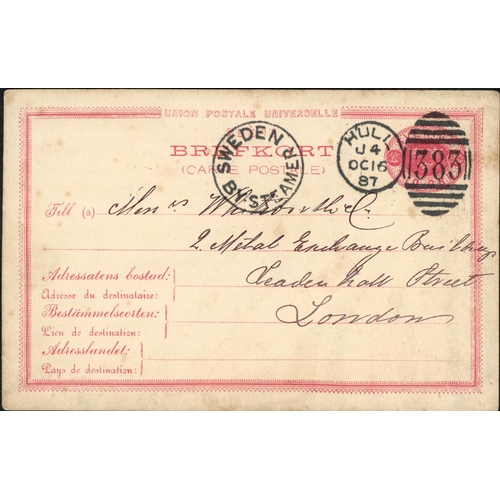 UNION POSTALE UNIVERSELLE
BREFKORT
(CARTE POSTALE)
SWEDEN BY STEAMER
HULL
J4
OC 16
87
383
Till (a) Messrs & Co.
2 Metal Exchange Buildings
Leadenhall Street
London
Adressatens bostad:
Adresse du destinataire:
Bestämmelseorten:
Lieu de destination:
Adresslandet:
Pays de destination: